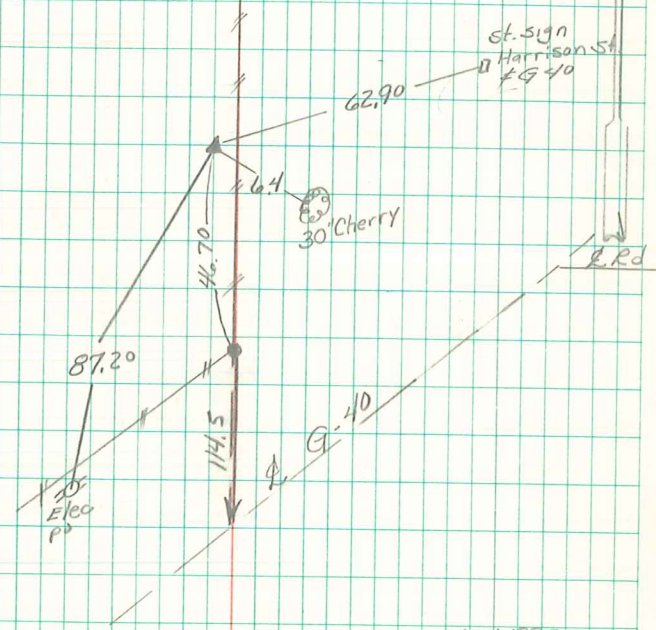 st. sign
Harrison st.
℄ G-40
62.90
6.4
30" Cherry
46.70
℄ Rd
87.20
114.5
℄ G-40
Elec
po